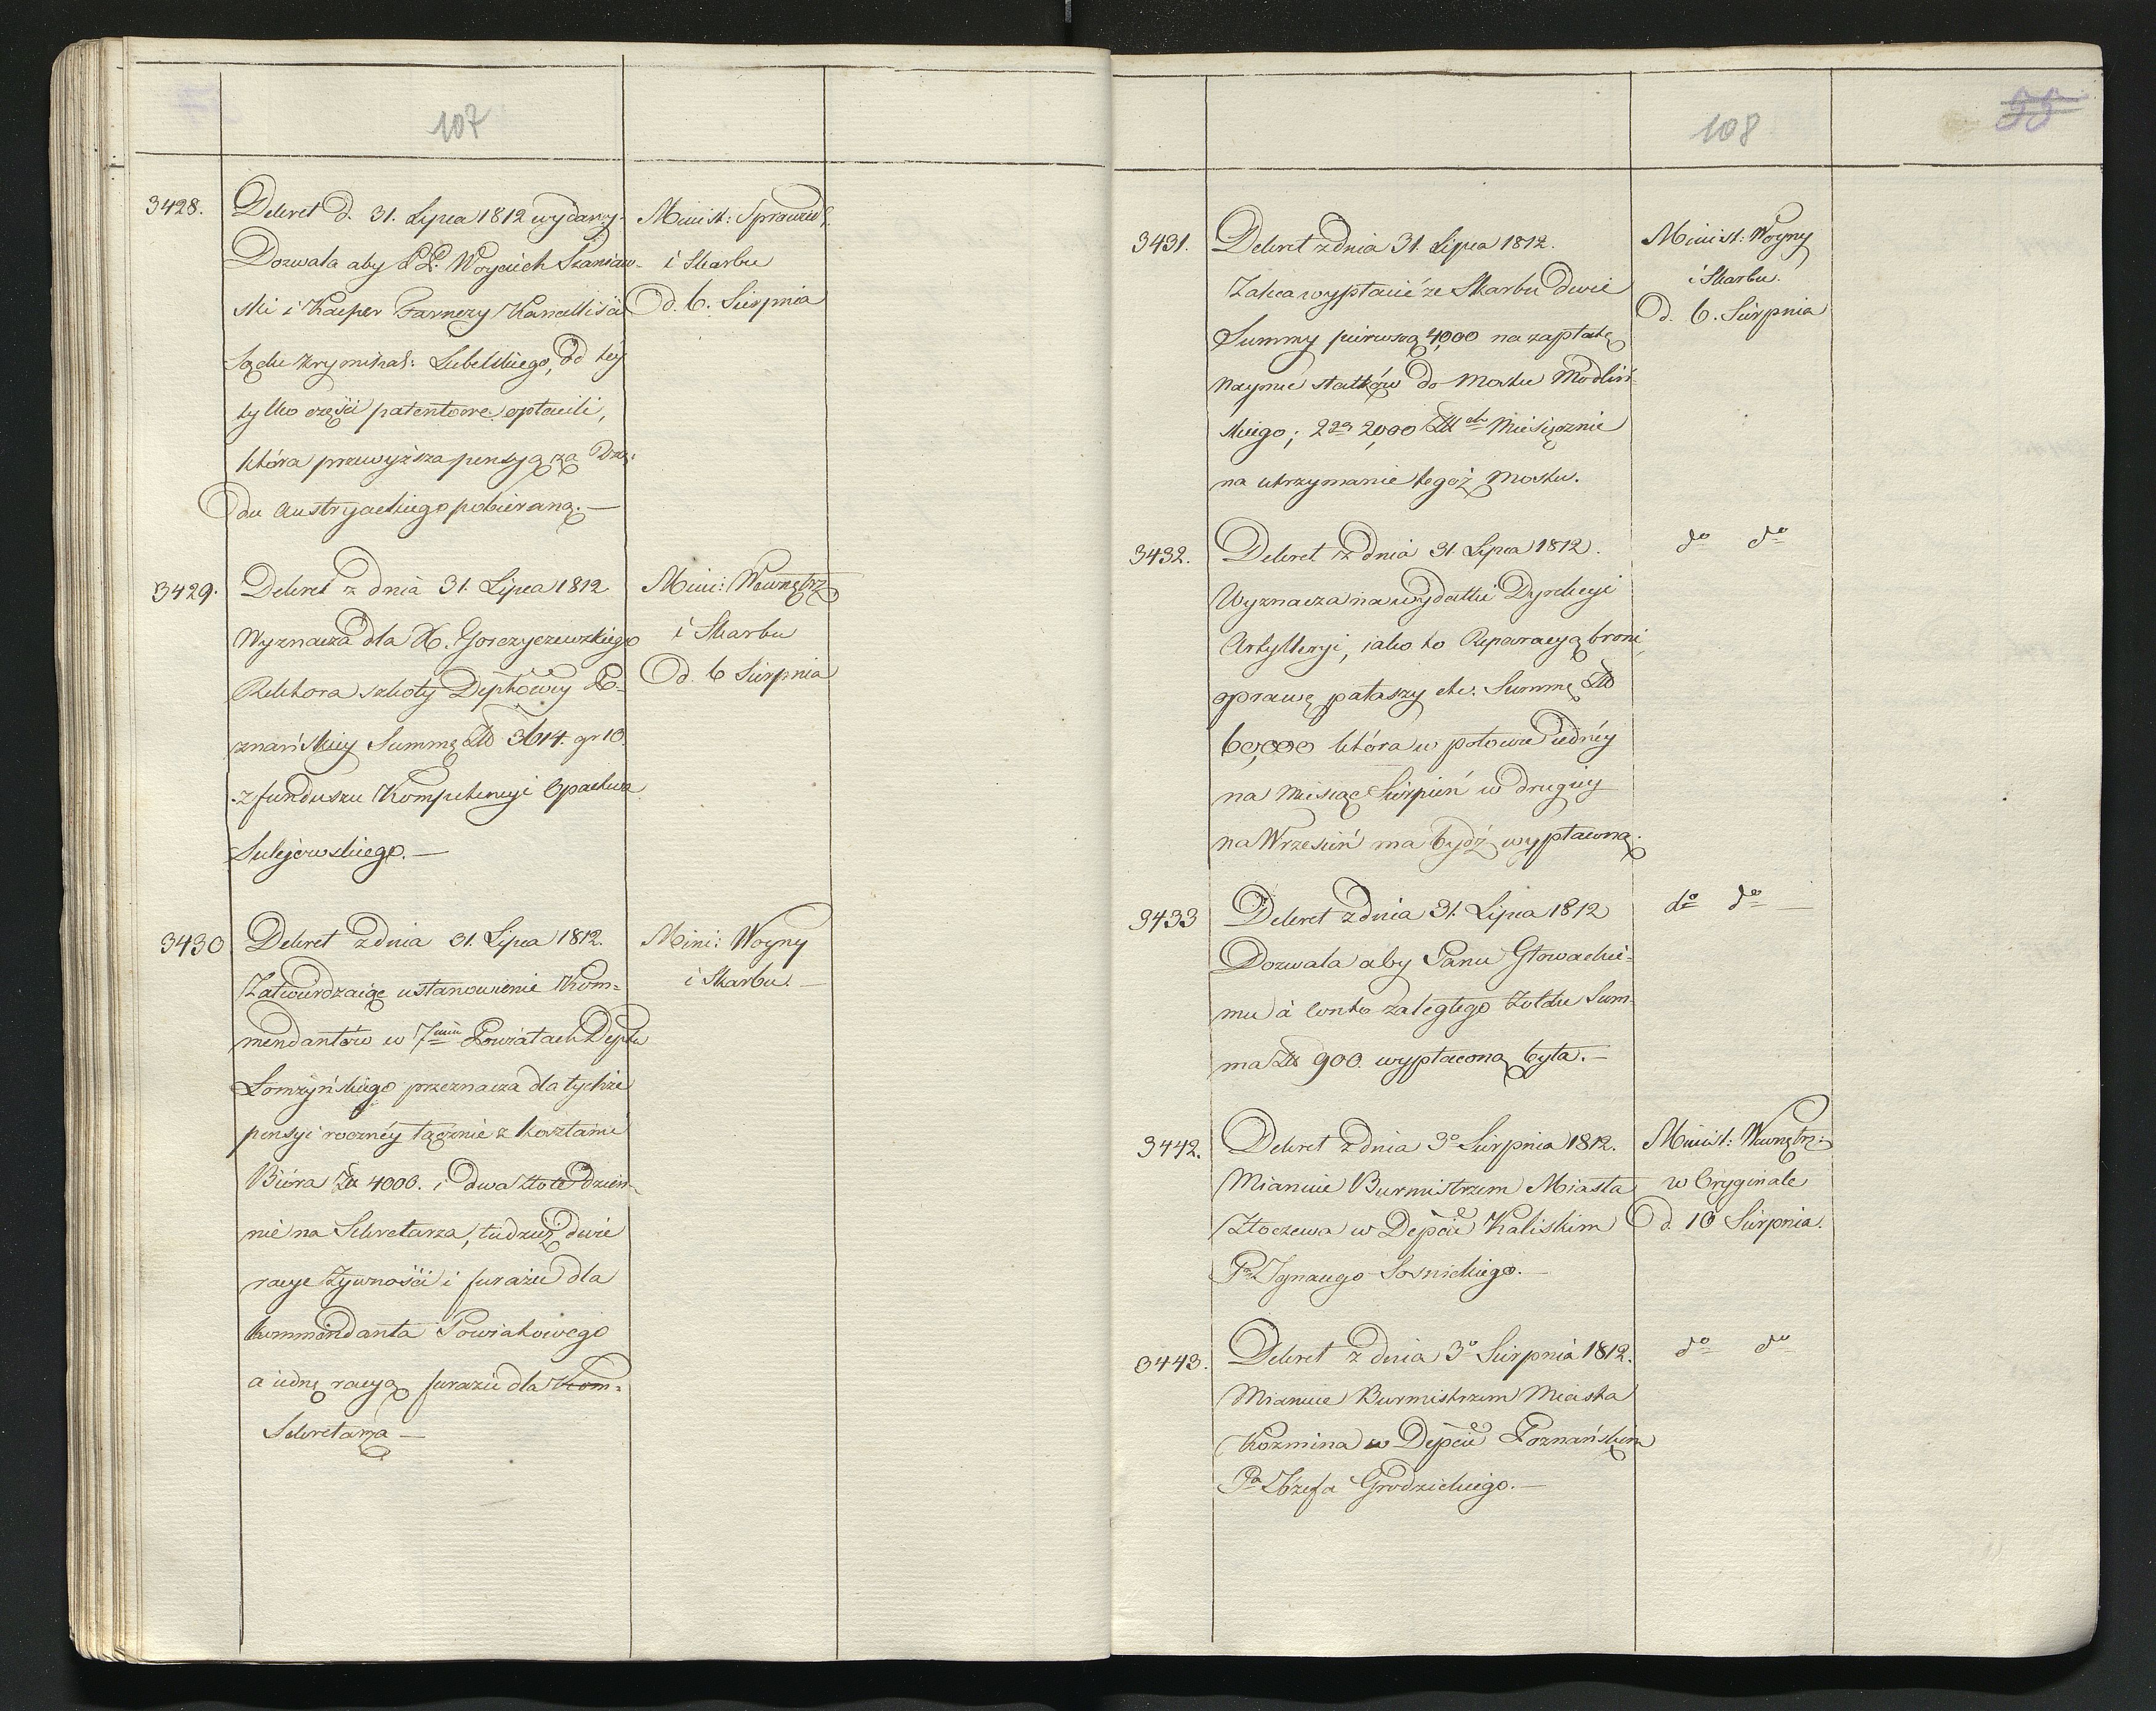 107
3428. Dekret d. 31. Lipca 1812 wydany. Minist: Sprawied.
Dozwala aby P.P. Woyciech Szaniaw- i Skarbu
ski i Kacper Farnezy Kancellisci d. 6. Sierpnia
Sądu Kryminal: Lubelskiego, od tey
tylko części patentowe opłacili,
która przewyższa pensyą za Rzą:
du Austryackiego pobieraną. —
3429. Dekret z dnia 31. Lipca 1812 Mini: Wewnętrz
Wyznacza dla X. Gorczyczewskiego i Skarbu
Rektora szkoły Deptowey Po- d. 6 Sierpnia
znańskiey Summę Złł 3614. gr 10.
z funduszu Kompetencyi Opactwa
Sulejowskiego. —
3430. Dekret z dnia 31. Lipca 1812. Mini: Woyny
Zatwierdzaiąc ustanowienie Kom= i Skarbu. —
mendantów w 7miu Powiatach Deptu
Łomżyńskiego przeznacza dla tychże
pensyi roczney łącznie z kosztami
Bióra Zł 4000. i dwa złote dzien-
nie na Sekretarza, tudzież dwie
racye żywności i furażu dla
kommendanta Powiatowego
a iednę racyą furażu dla Kom=
Sekretarza —
108
55
3431. Dekret z dnia 31. Lipca 1812. Minist: Woyny
Zaleca wypłacić ze Skarbu dwie i Skarbu.
Summy pierwszą 4000 na zapłatę d. 6. Sierpnia
naymu statków do Mostu Modliń-
skiego; 2gą 2,000 Złł Miesięcznie
na utrzymanie tegoż Mostu.
3432. Dekret z dnia 31. Lipca 1812. do do
Wyznacza na wydatki Dyrekcyi
Artylleryi, iako to Reparacyą broni,
oprawę pałaszy etc. Summę Złł
60,000 która w połowie iedney
na Miesiąc Sierpień w drugiey
na Wrzesień ma bydź wypłaconą.
3433 Dekret z dnia 31. Lipca 1812 do do —
Dozwala aby Panu Głowackie-
mu à Conto zaległego Żołdu Sum-
ma Zł 900. wypłaconą była. —
3442. Dekret z dnia 3o Sierpnia 1812. Minist: Wewnętrz:
Mianuie Burmistrzem Miasta w Oryginale
Złoczewa w Depcie Kaliskim d. 10 Sierpnia.
Pa Ignacego Sosnickiego. —
3443. Dekret z dnia 3o Sierpnia 1812. do do
Mianuie Burmistrzem Miasta
Kozmina w Depcie Poznańskim
Pa Józefa Grodzickiego. —